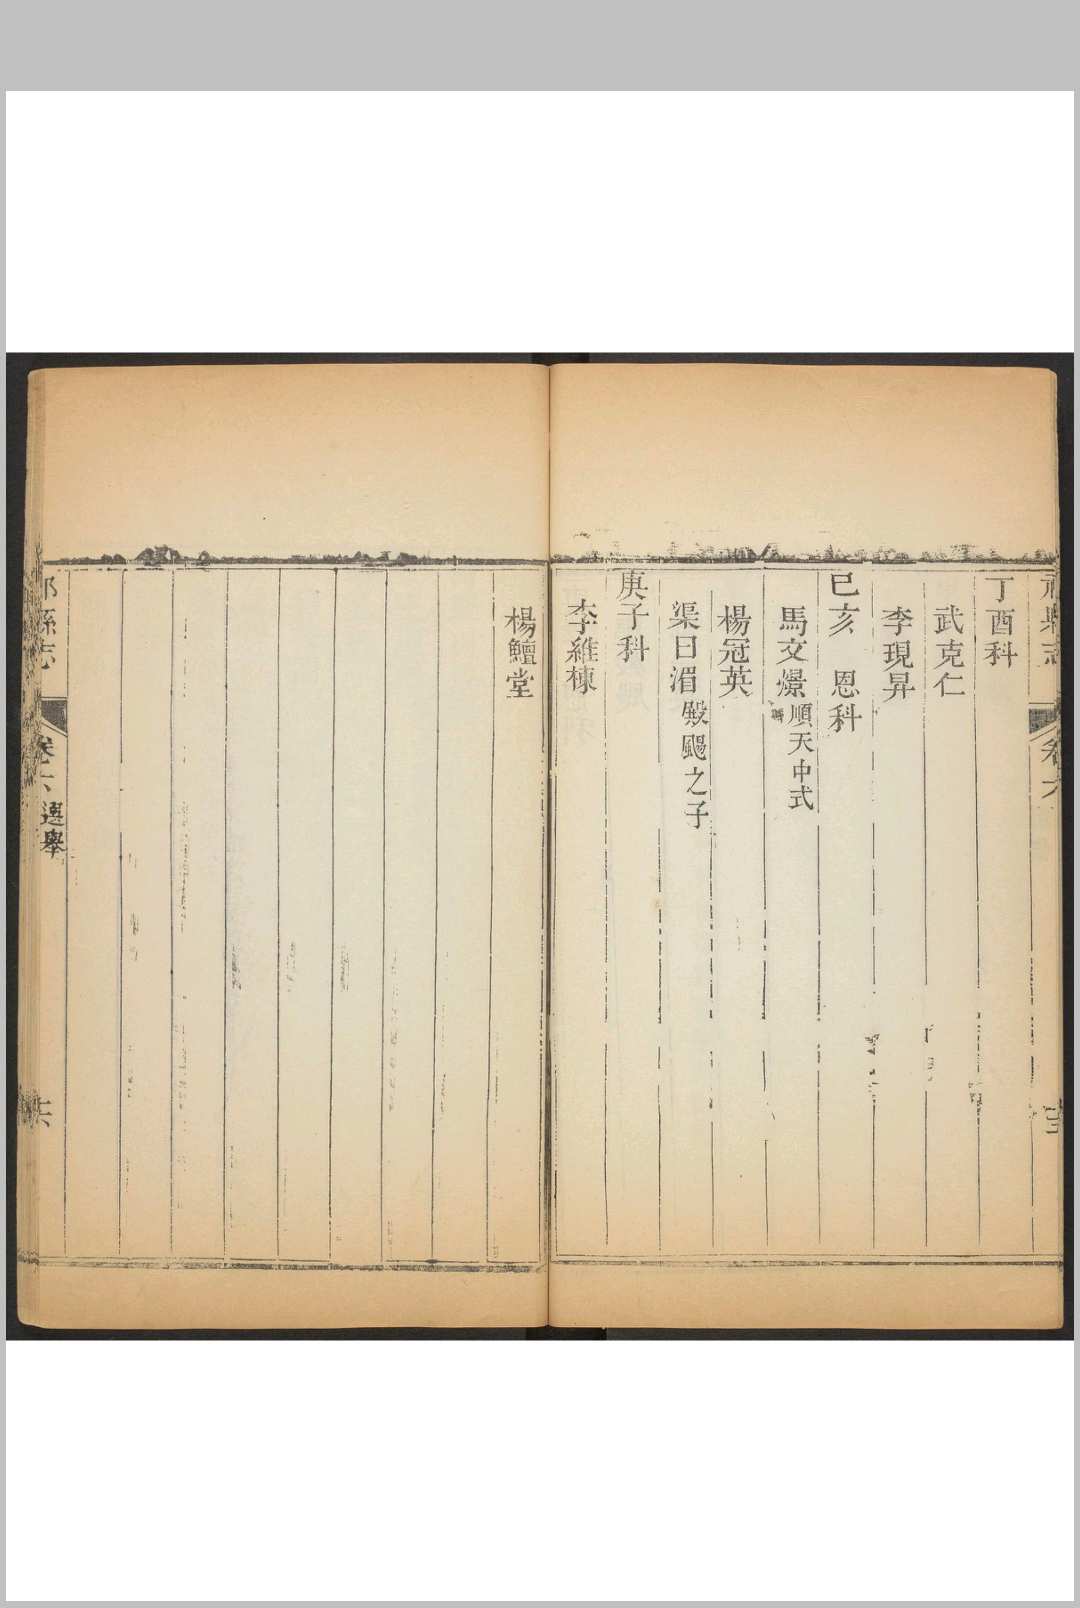 丁酉科
武克仁
李現昇
己亥　恩科
馬文燝順天中式
楊冠英
渠日湄殿颺之子
庚子科
李維棟
楊鱣堂
祁縣志
卷六
選舉